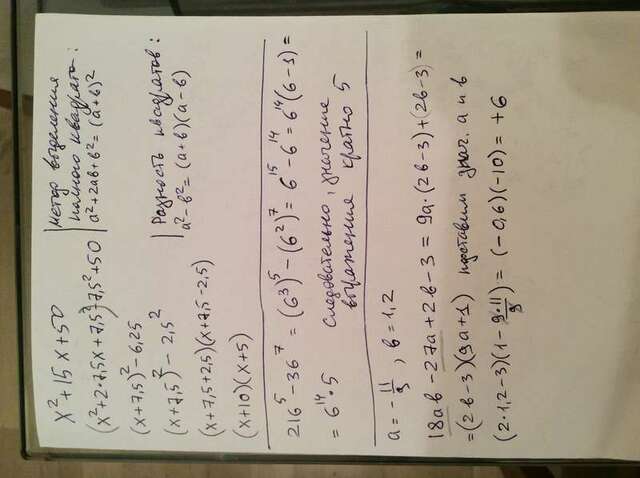 x²+15x+50
(x²+2·7,5x+7,5²)-7,5²+50
(x+7,5)²-6,25
(x+7,5)²-2,5²
(x+7,5+2,5)(x+7,5-2,5)
(x+10)(x+5)
метод выделения
полного квадрата:
a²+2ab+b²=(a+b)²
Разность квадратов:
a²-b²=(a+b)(a-b)
216⁵-36⁷=(6³)⁵-(6²)⁷=6¹⁵-6¹⁴=6¹⁴(6-1)=
=6¹⁴·5
Следовательно, значение
выражения кратно 5
a=-11/9, b=1,2
18ab-27a+2b-3=9a·(2b-3)+(2b-3)=
=(2b-3)(9a+1) подставим знач. a и b
(2·1,2-3)(1-9·11/9)=(-0,6)(-10)=+6